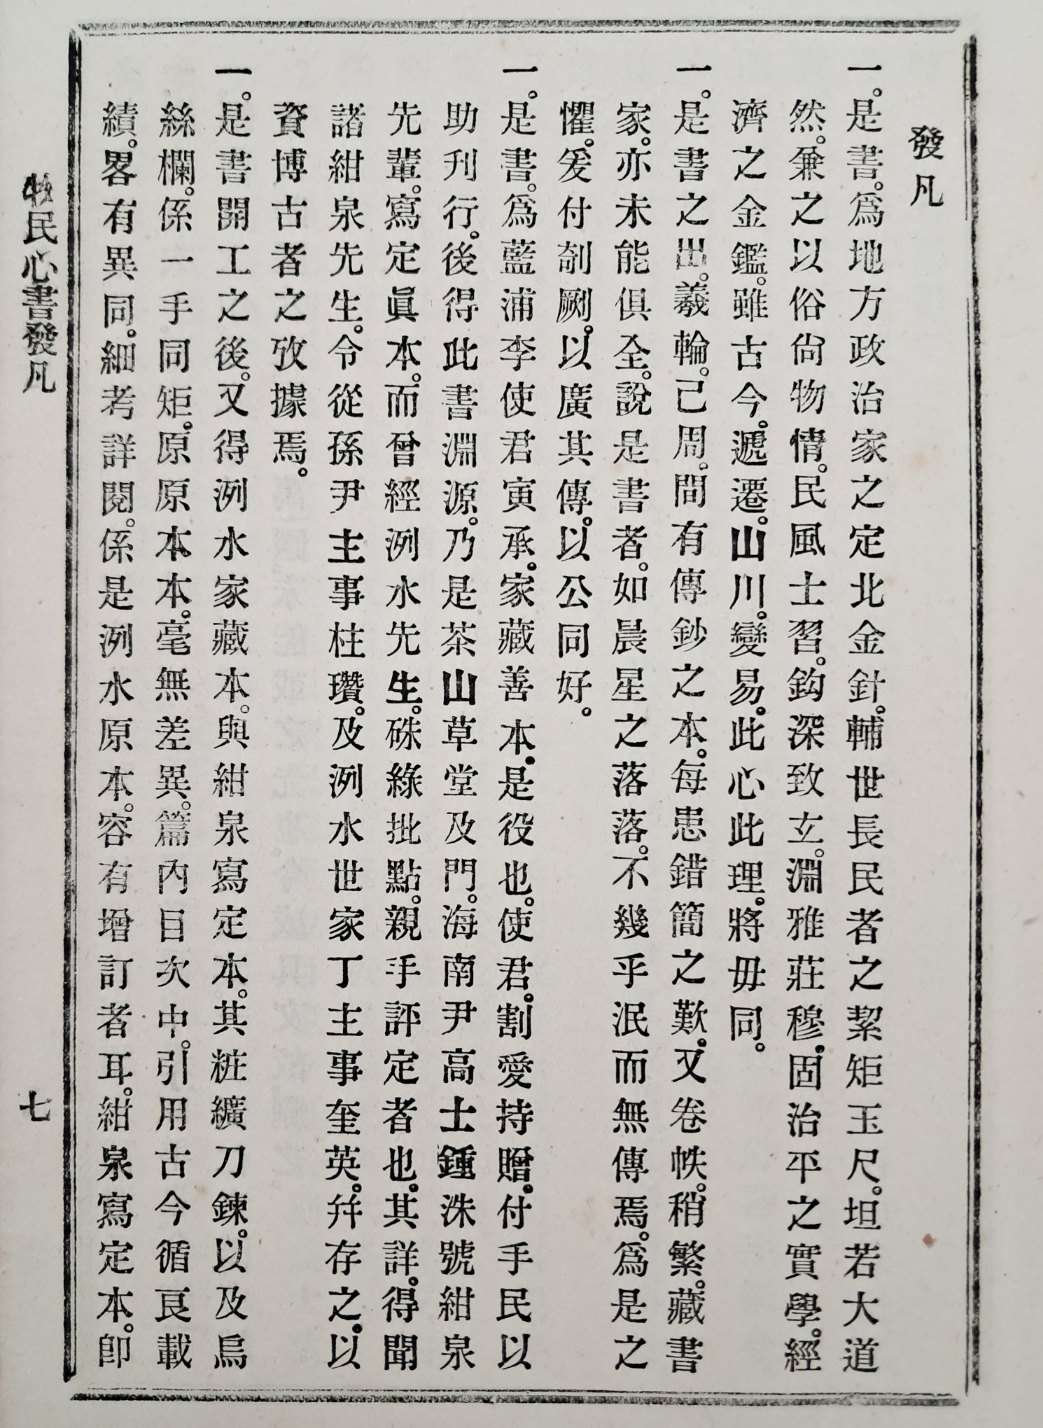 發凡
一。是書。爲地方政治家之定北金針。輔世長民者之絜矩玉尺。坦若大道
然。兼之以俗尙物情。民風士習。鈎深致玄。淵雅莊穆。固治平之實學。經
濟之金鑑。雖古今。遞遷。山川。變易。此心此理。將毋同。
一。是書之出。羲輪。己周。間有傳鈔之本。每患錯簡之歎。又卷帙。稍繁。藏書
家。亦未能俱全。說是書者。如晨星之落落。不幾乎泯而無傳焉。爲是之
懼。爰付剞劂。以廣其傳。以公同好。
一。是書。爲藍浦李使君寅承。家藏善本。是役也。使君。割愛持贈。付手民以
助刋行。後得此書淵源。乃是茶山草堂及門。海南尹高士鍾洙號紺泉
先輩。寫定眞本。而曾經洌水先生。硃綠批點。親手評定者也。其詳。得聞
諸紺泉先生。令從孫尹主事柱瓚。及洌水世家丁主事奎英。幷存之。以
資博古者之攷據焉。
一。是書開工之後。又得洌水家藏本。與紺泉寫定本。其粧纊刀鍊。以及烏
絲欄。係一手同矩。原原本本。毫無差異。篇內目次中。引用古今循良載
績。畧有異同。細考詳閱。係是洌水原本。容有增訂者耳。紺泉寫定本。卽
牧民心書發凡
七